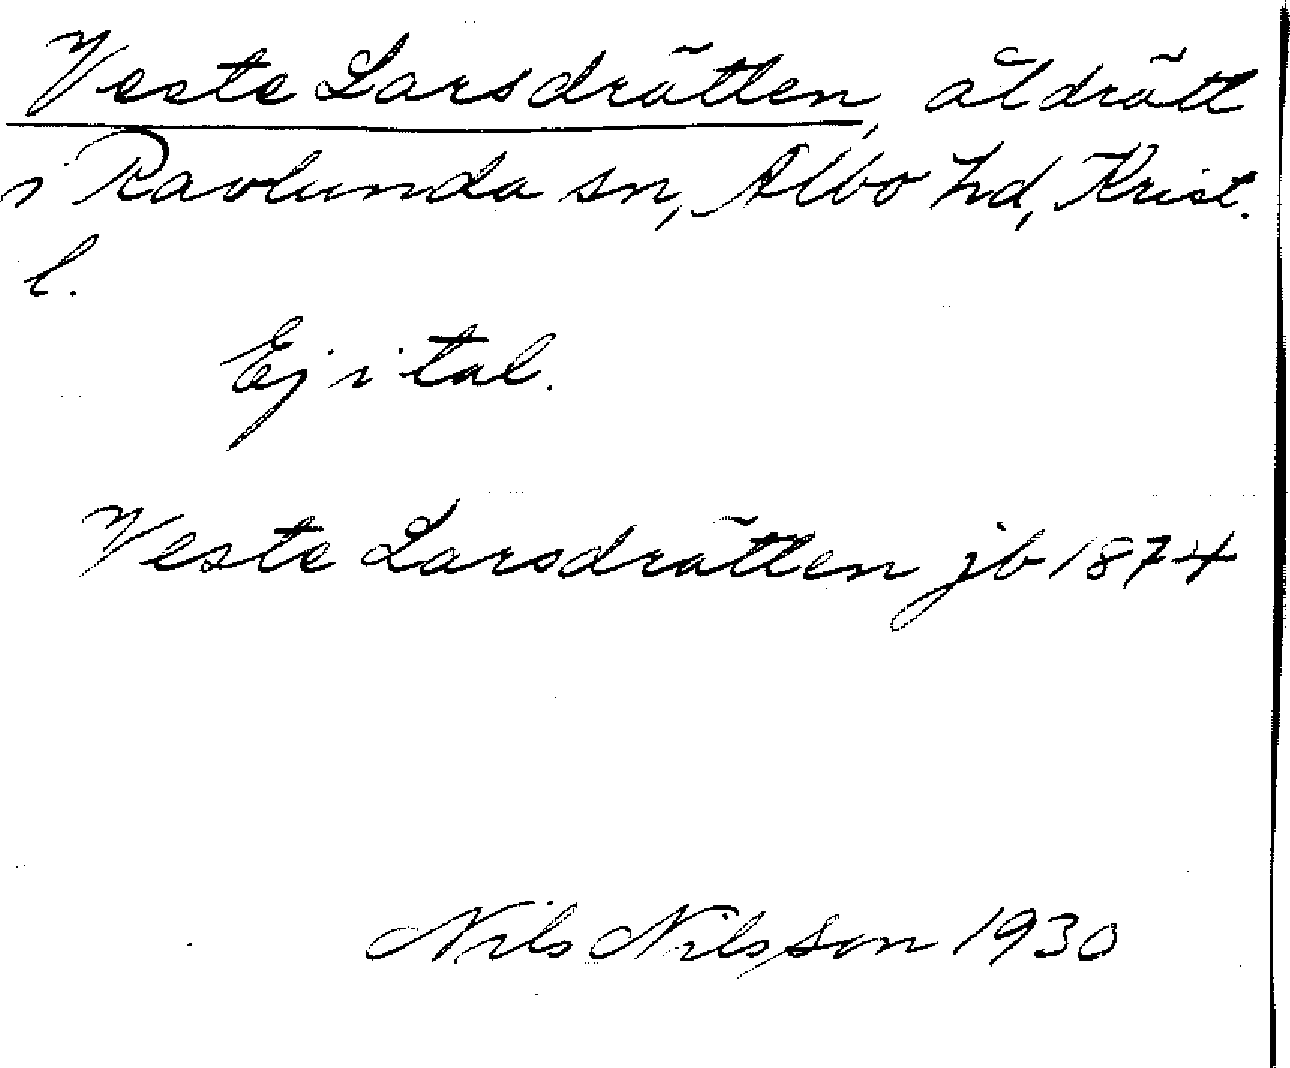 Veste Larsdrätten, åldrätt
i Ravlunda sn, Albo hd, Krist.
l.
Ej i tal.
Veste Larsdrätten jb 1874
Nils Nilsson 1930